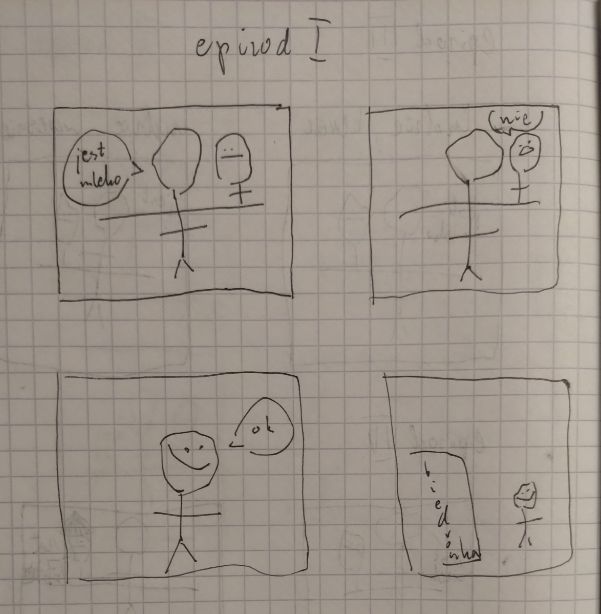 epizod I
jest
mleko
nie
ok
biedronka